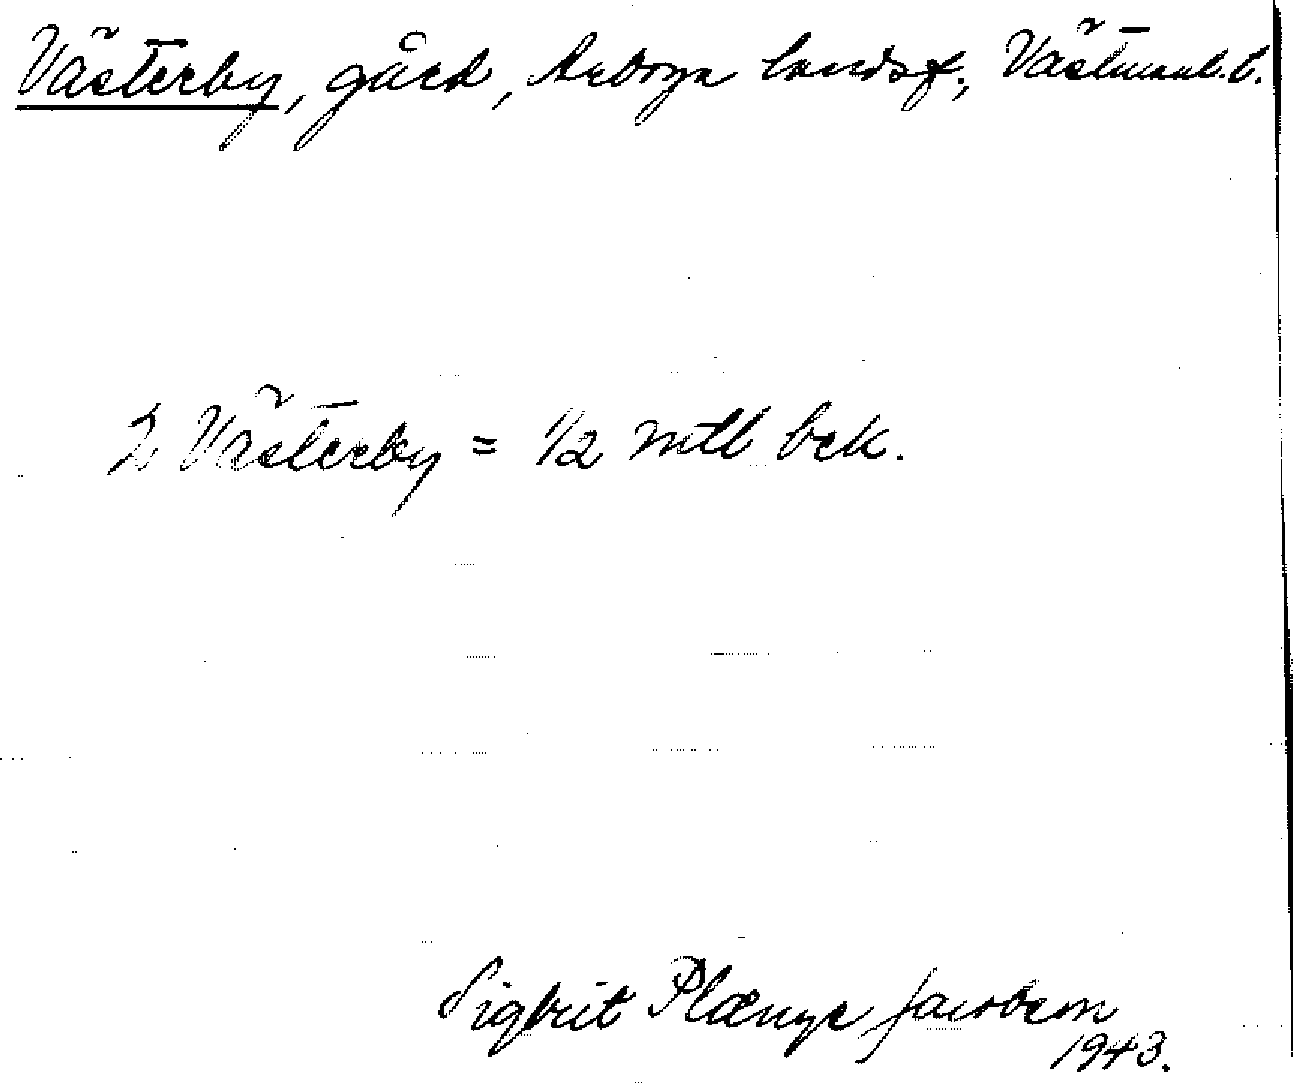 Västerby, gård, Arboga landsf., Västmanl. l.
2 Västerby = 1/2 mtl bek.
Sigbrit Plænge Jacobson
1943.